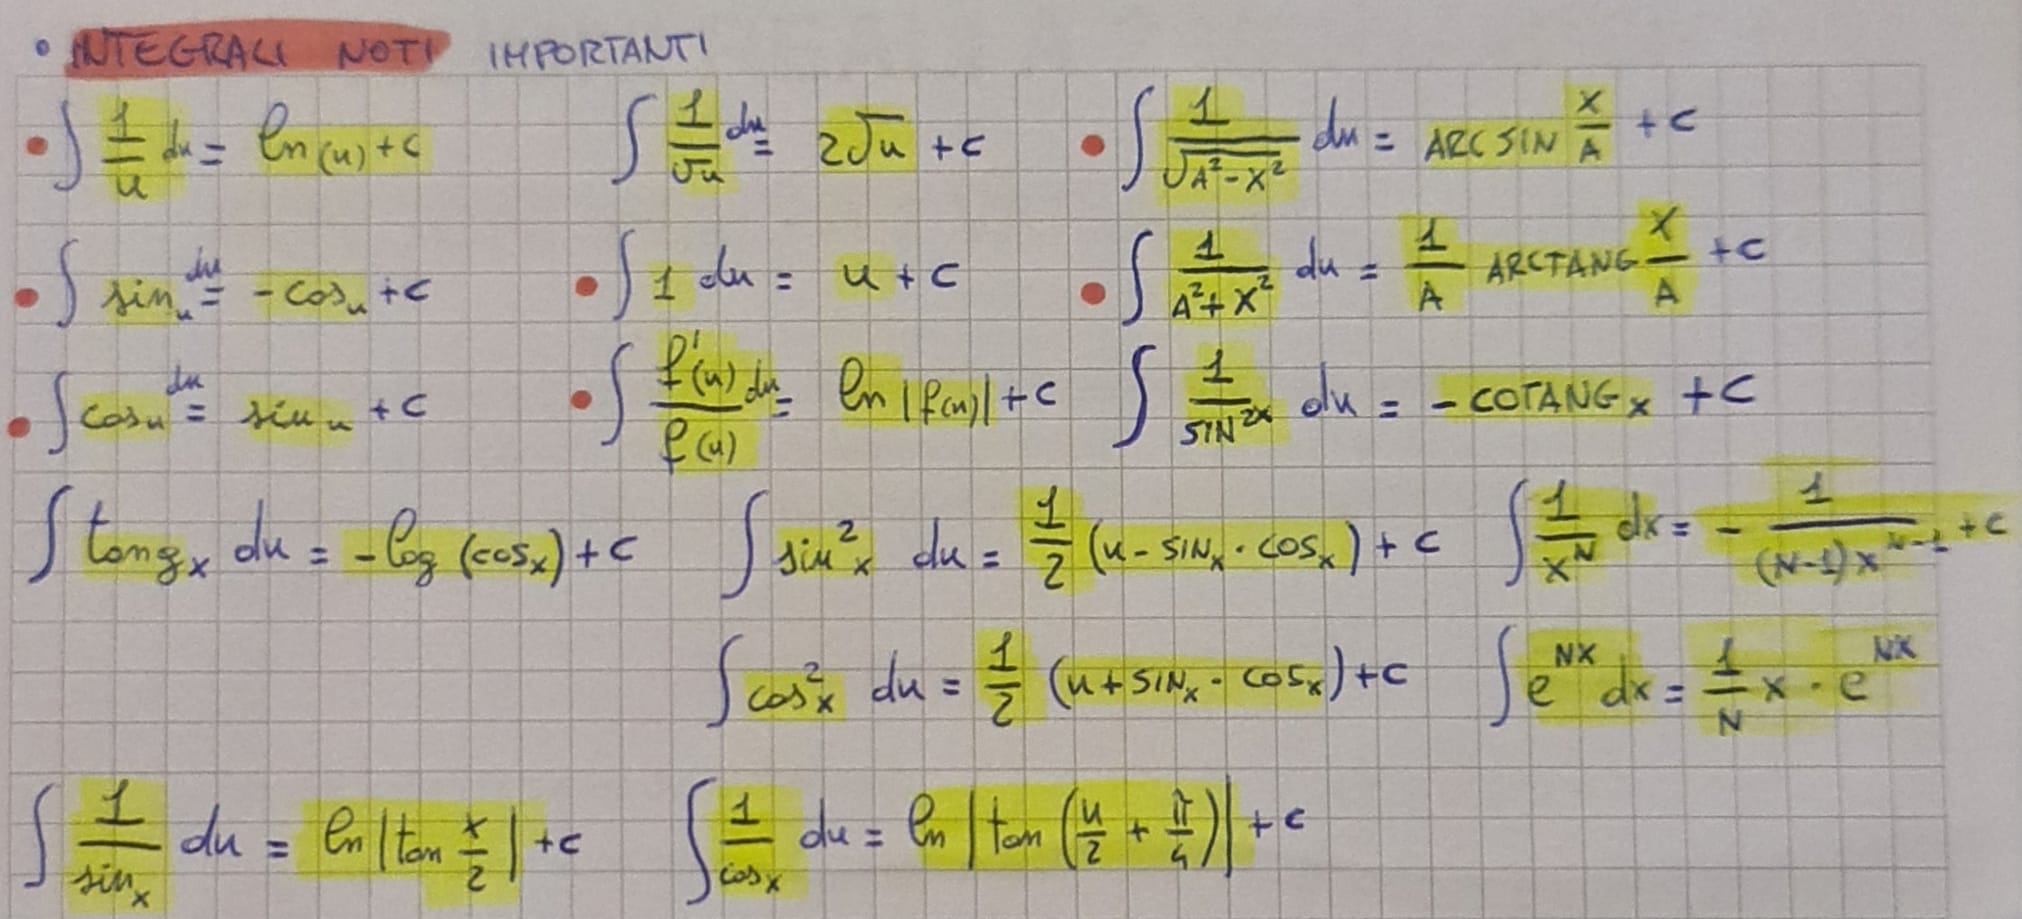 • INTEGRALI NOTI IMPORTANTI
• ∫ 1/u du = ln(u) + c   ∫ 1/√u du = 2√u + c   • ∫ 1/√(A² - X²) du = ARCSIN X/A + C
• ∫ sin u du = -cos u + c   • ∫ 1 du = u + c   • ∫ 1/(A² + X²) du = 1/A ARCTANG X/A + C
• ∫ cos u du = sin u + c   • ∫ f'(u)/f(u) du = ln |f(u)| + c   ∫ 1/SIN^2x du = - COTANG x + C
∫ tang x du = -log (cos x) + c   ∫ sin² x du = 1/2 (u - SIN x · COS x) + c   ∫ 1/x^N dx = - 1/((N-1) x^(N-1)) + c
∫ cos² x du = 1/2 (u + SIN x · COS x) + c   ∫ e^NX dx = 1/N x · e^NX
∫ 1/sin x du = ln |tan x/2| + c   ∫ 1/cos x du = ln |tan (u/2 + π/4)| + c